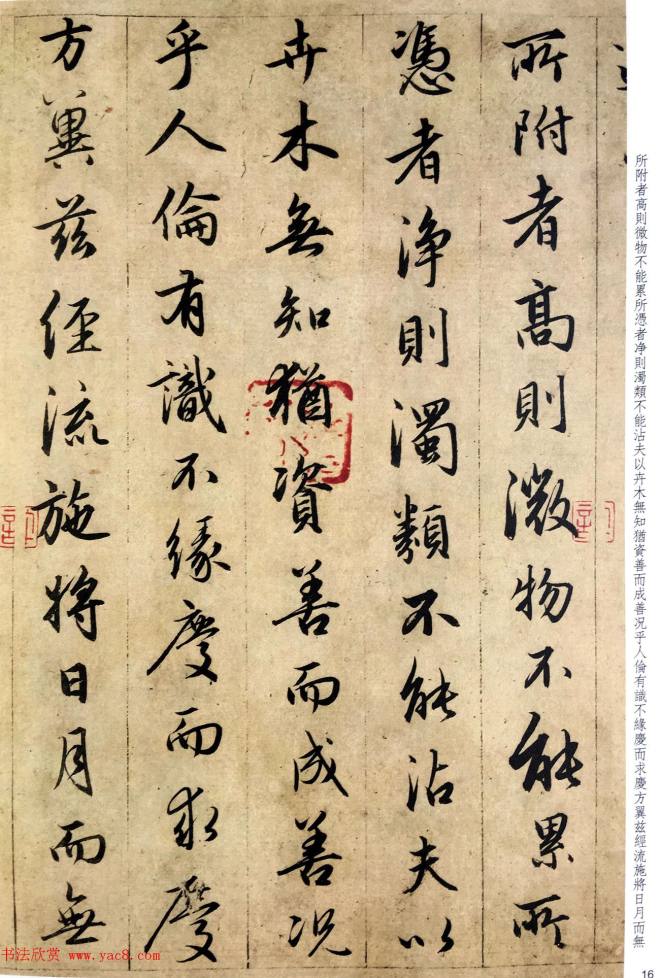 所附者高則微物不能累所
憑者淨則濁類不能沾夫以
卉木無知猶資善而成善況
乎人倫有識不緣慶而求慶
方冀茲經流施將日月而無
所附者高則微物不能累所憑者净則濁類不能沾夫以卉木無知猶資善而成善况乎人倫有識不緣慶而求慶方翼兹經流施將日月而無
16
书法欣赏 www.yac8.com